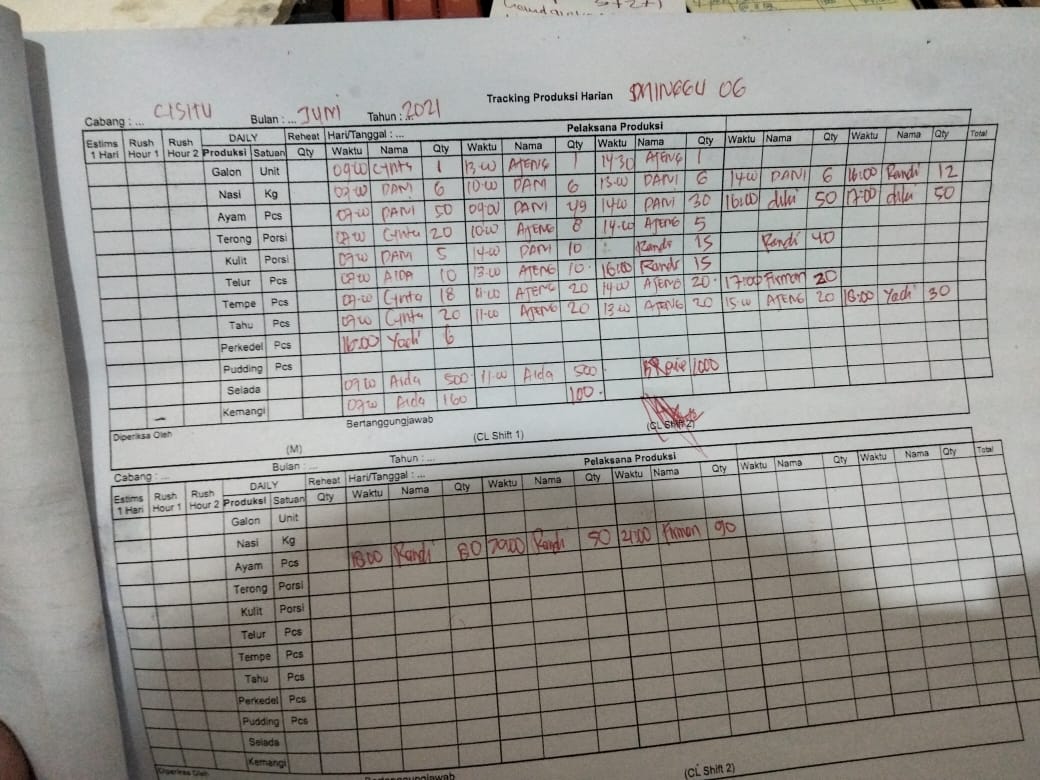 Tracking Produksi Harian MINGGU 06
Cabang : ... CISITU Bulan : ... JUNI Tahun : ... 2021
Estims 1 Hari Rush Hour 1 Rush Hour 2 DAILY Produksi Satuan Reheat Qty Hari/Tanggal : ... Pelaksana Produksi
Waktu Nama Qty Waktu Nama Qty Waktu Nama Qty Waktu Nama Qty Waktu Nama Qty Total
Galon Unit 09.00 Cynta 1 13.00 AJENG 1 14.30 AJENG 1
Nasi Kg 07.00 DANI 6 10.00 DANI 6 13.00 DANI 6 14.00 DANI 6 16:00 Randi 12
Ayam Pcs 07.00 DANI 50 09.00 DANI 49 14.00 DANI 30 16:00 diki 50 17:00 diki 50
Terong Porsi Cynta 20 10.00 AJENG 8 14.00 AJENG 5
Kulit Porsi 07.00 DANI 5 14.00 DANI 10 Randi 15 Randi 40
Telur Pcs AIDA 10 13.00 AJENG 10 16:00 Randi 15
Tempe Pcs 07.00 Cynta 18 11.00 AJENG 20 14.00 AJENG 20 17:00 Firman 20
Tahu Pcs 07.00 Cynta 20 11.00 AJENG 20 13.00 AJENG 20 15.00 AJENG 20 18:00 Yadi 30
Perkedel Pcs 16:00 Yadi 6
Pudding Pcs
Selada 07.00 Aida 500 11.00 Aida 500 1000
Kemangi 07.00 Aida 160 100
Diperiksa Oleh Bertanggungjawab
(M) (CL Shift 1) (CL Shift 2)
Cabang : ... Bulan : ... Tahun : ...
Estims 1 Hari Rush Hour 1 Rush Hour 2 DAILY Produksi Satuan Reheat Qty Hari/Tanggal : ... Pelaksana Produksi
Waktu Nama Qty Waktu Nama Qty Waktu Nama Qty Waktu Nama Qty Waktu Nama Qty Total
Galon Unit
Nasi Kg
Ayam Pcs 18:00 Randi 20:00 Randi 50 21:00 Firman 90
Terong Porsi
Kulit Porsi
Telur Pcs
Tempe Pcs
Tahu Pcs
Perkedel Pcs
Pudding Pcs
Selada
Kemangi
Diperiksa Oleh Bertanggungjawab (CL Shift 2)